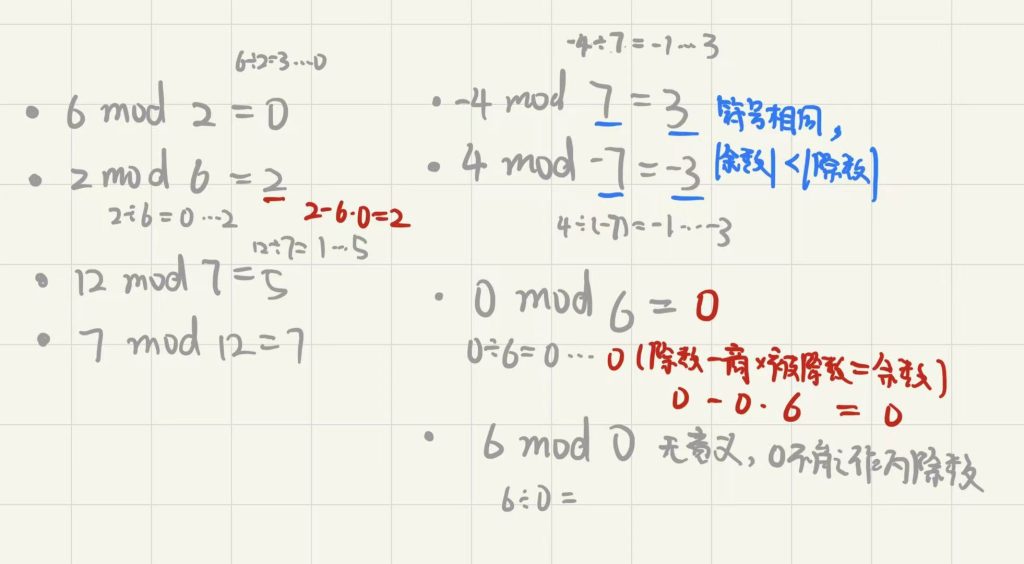 6÷2=3…0
• 6 mod 2 = 0
• 2 mod 6 = 2
2÷6=0…2
2-6·0=2
12÷7=1…5
• 12 mod 7=5
• 7 mod 12=7
-4÷7=-1…3
• -4 mod 7 = 3
符号相同,
• 4 mod -7=-3
|余数|<|除数|
4÷(-7)=-1…-3
• 0 mod 6 = 0
0÷6=0…0(除数-商×被除数=余数)
0-0·6=0
• 6 mod 0 无意义,0不能作为除数
6÷0=